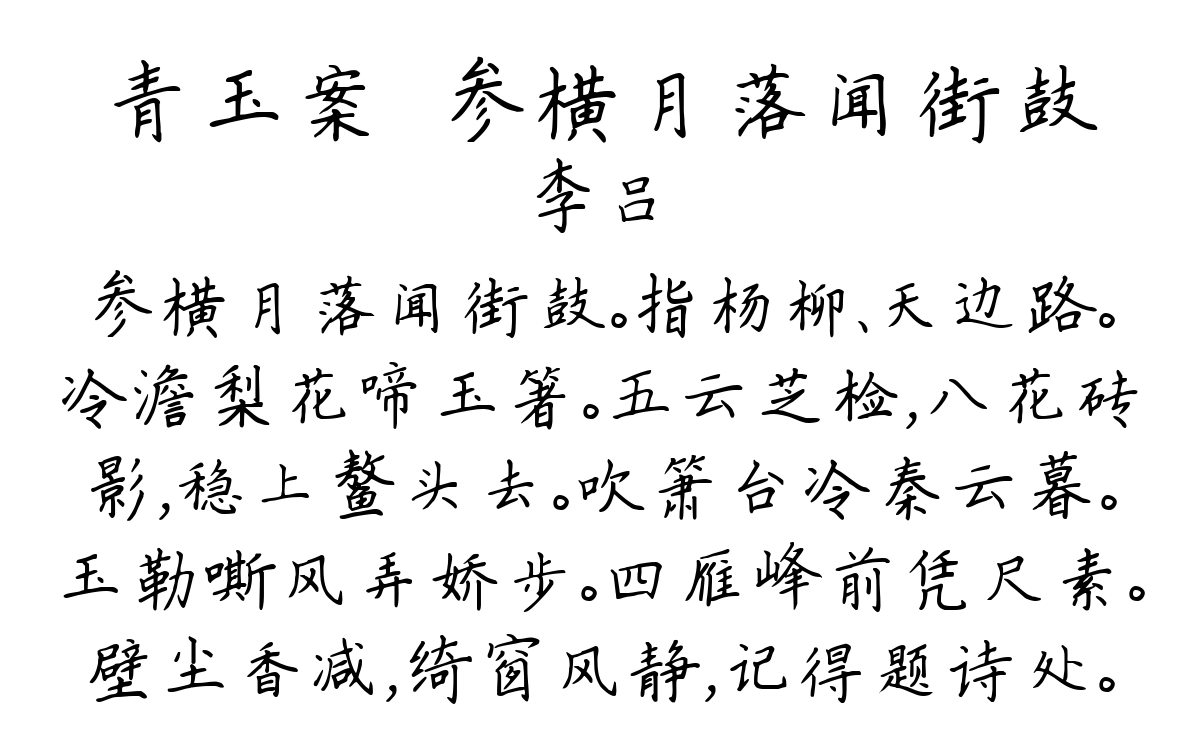 青玉案 参横月落闻街鼓
李吕
参横月落闻街鼓。指杨柳、天边路。
冷澹梨花啼玉箸。五云芝检,八花砖
影,稳上鳌头去。吹箫台冷秦云暮。
玉勒嘶风弄娇步。四雁峰前凭尺素。
壁尘香减,绮窗风静,记得题诗处。